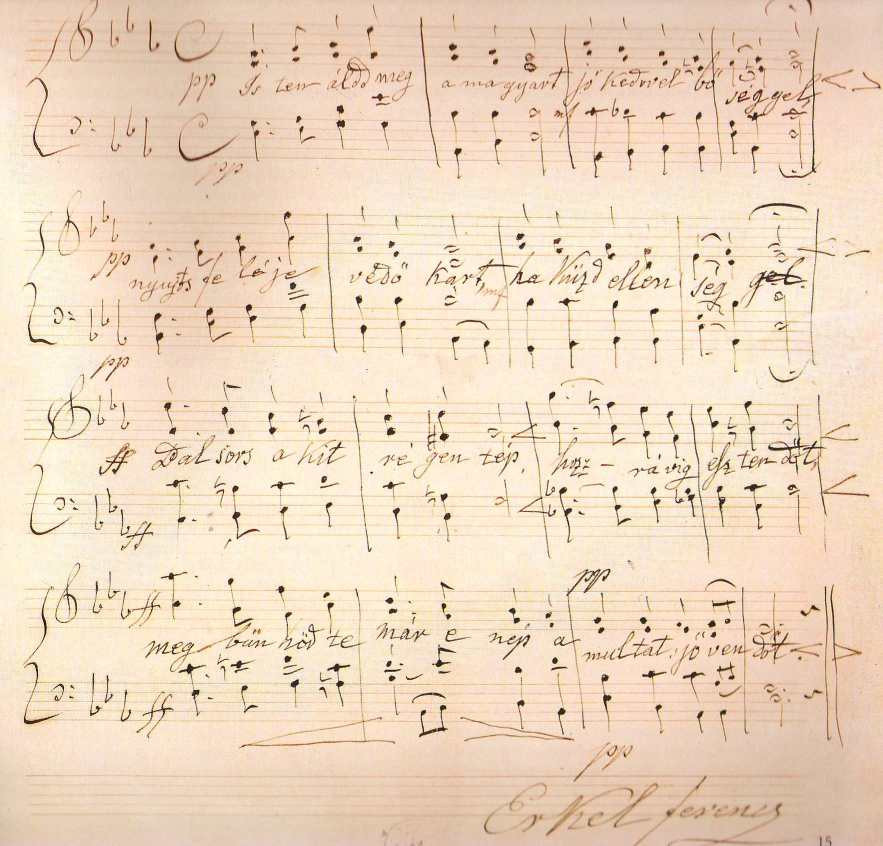 pp Is ten áldd meg a magyart mf jó kedvel bő ség gel,
pp
pp nyujts fe lé je védő kart, mf ha küzd ellen ség gel.
pp
ff Bal sors a kit régen tép, hozz - rá víg esz ten dőt,
ff
ff pp
meg bün hőd te már e nép a multat jö ven dőt
ff
pp
Erkel ferencz
15